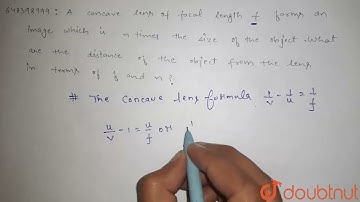 648392999: A concave lens of focal length f forms an
image which is n times the size of the object. What
are the distance of the object from the lens
in terms of f and n?
# The Concave lens formula 1/v - 1/u = 1/f
u/v - 1 = u/f or 1
doubtnut